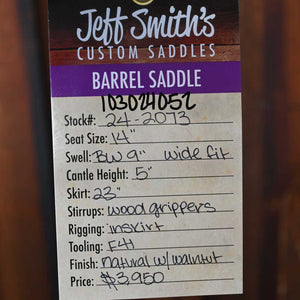 Jeff Smith's
CUSTOM SADDLES
BARREL SADDLE
103024052
Stock#: 24-2073
Seat Size: 14"
Swell: BW 9" wide fit
Cantle Height: 5"
Skirt: 23"
Stirrups: wood grippers
Rigging: inskirt
Tooling: F41
Finish: natural w/ walnut
Price: $3,950